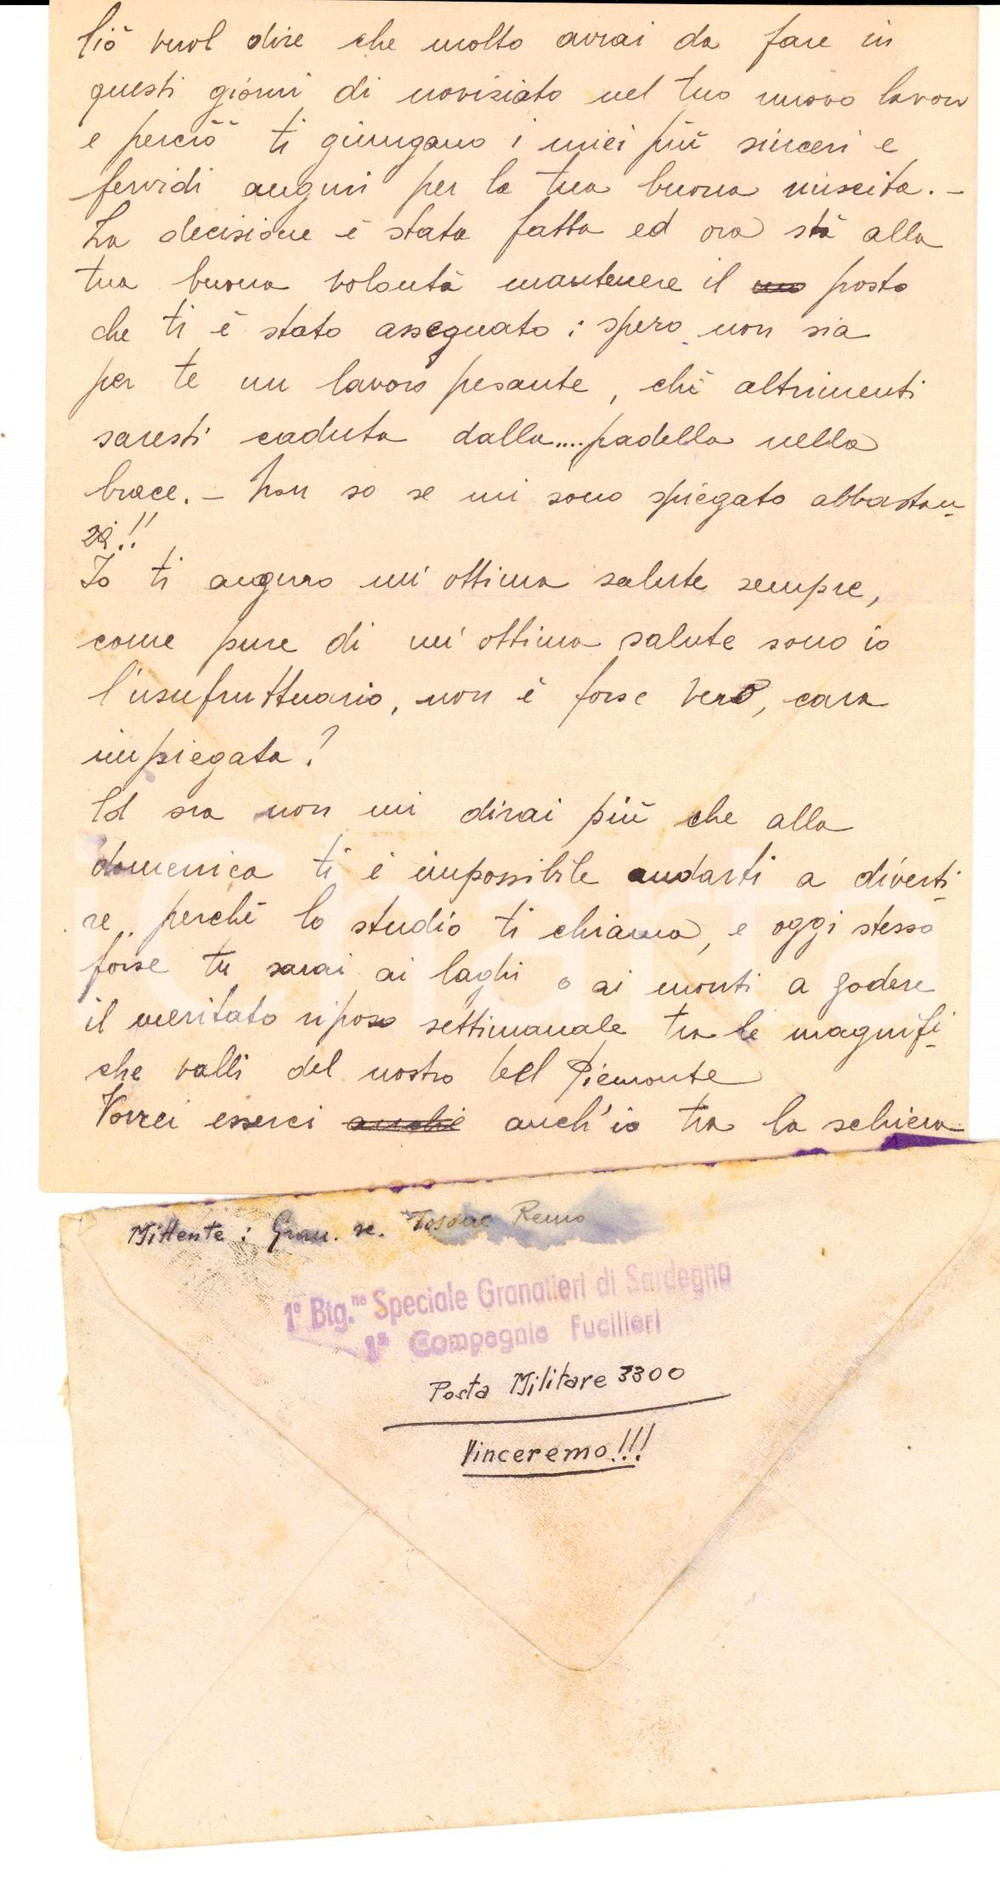 Ciò vuol dire che molto avrai da fare in
questi giorni di noviziato nel tuo nuovo lavoro
e perciò ti giungano i miei più sinceri e
fervidi auguri per la tua buona riuscita. –
La decisione è stata fatta ed ora stà alla
tua buona volontà mantenere il posto
che ti è stato assegnato; spero non sia
per te un lavoro pesante, chè altrimenti
saresti caduta dalla....padella nella
brace. – Non so se mi sono spiegato abbastan-
za!!
Io ti auguro un'ottima salute sempre,
come pure di un'ottima salute sono io
l'usufruttuario, non è forse vero, cara
impiegata?
Ed ora non mi dirai più che alla
domenica ti è impossibile andarti a diverti-
re.. perchè lo studio ti chiama, e oggi stesso
forse tu sarai ai laghi o ai monti a godere
il meritato riposo settimanale tra le magnifi-
che valli del nostro bel Piemonte
Vorrei esserci anche anch'io tra la schiera
Mittente: Gran. sc. Tosone Remo
1° Btg.ne Speciale Granatieri di Sardegna
1ª Compagnia Fucilieri
Posta Militare 3300
Vinceremo!!!